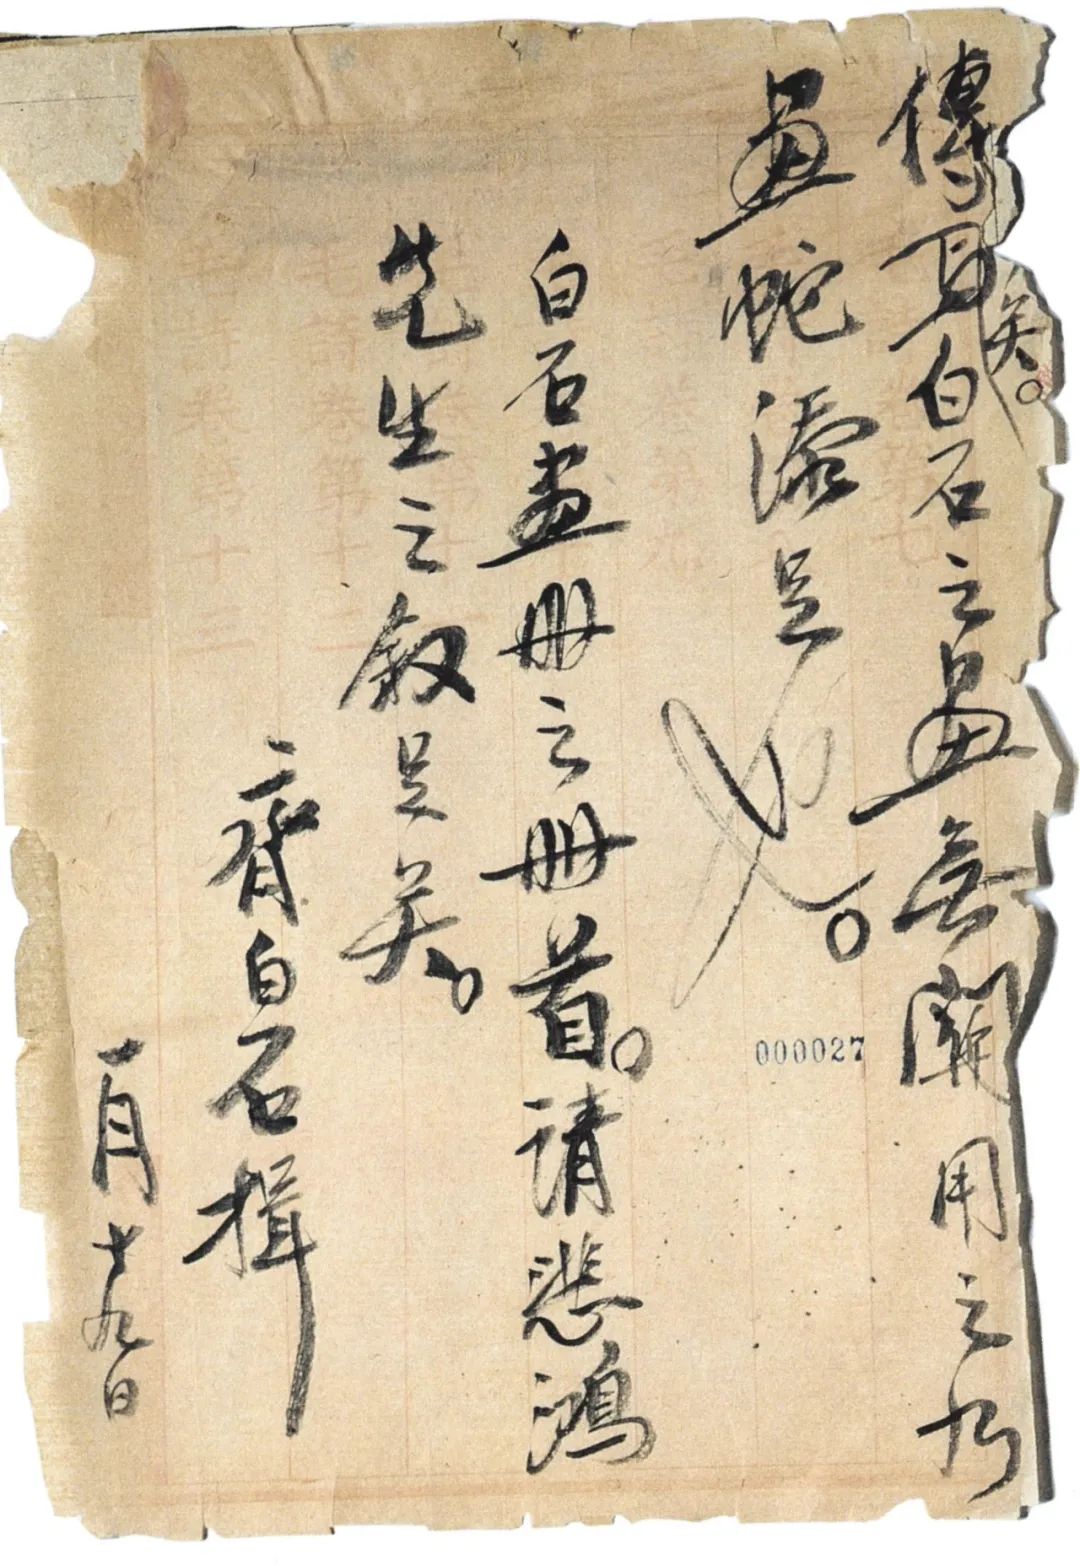 矣。
傳 白石之畫無關用之乃
畫蛇添足也。
000027
白石畫册之册首。請悲鴻
先生之叙足矣。
齊白石揖
一月十九日